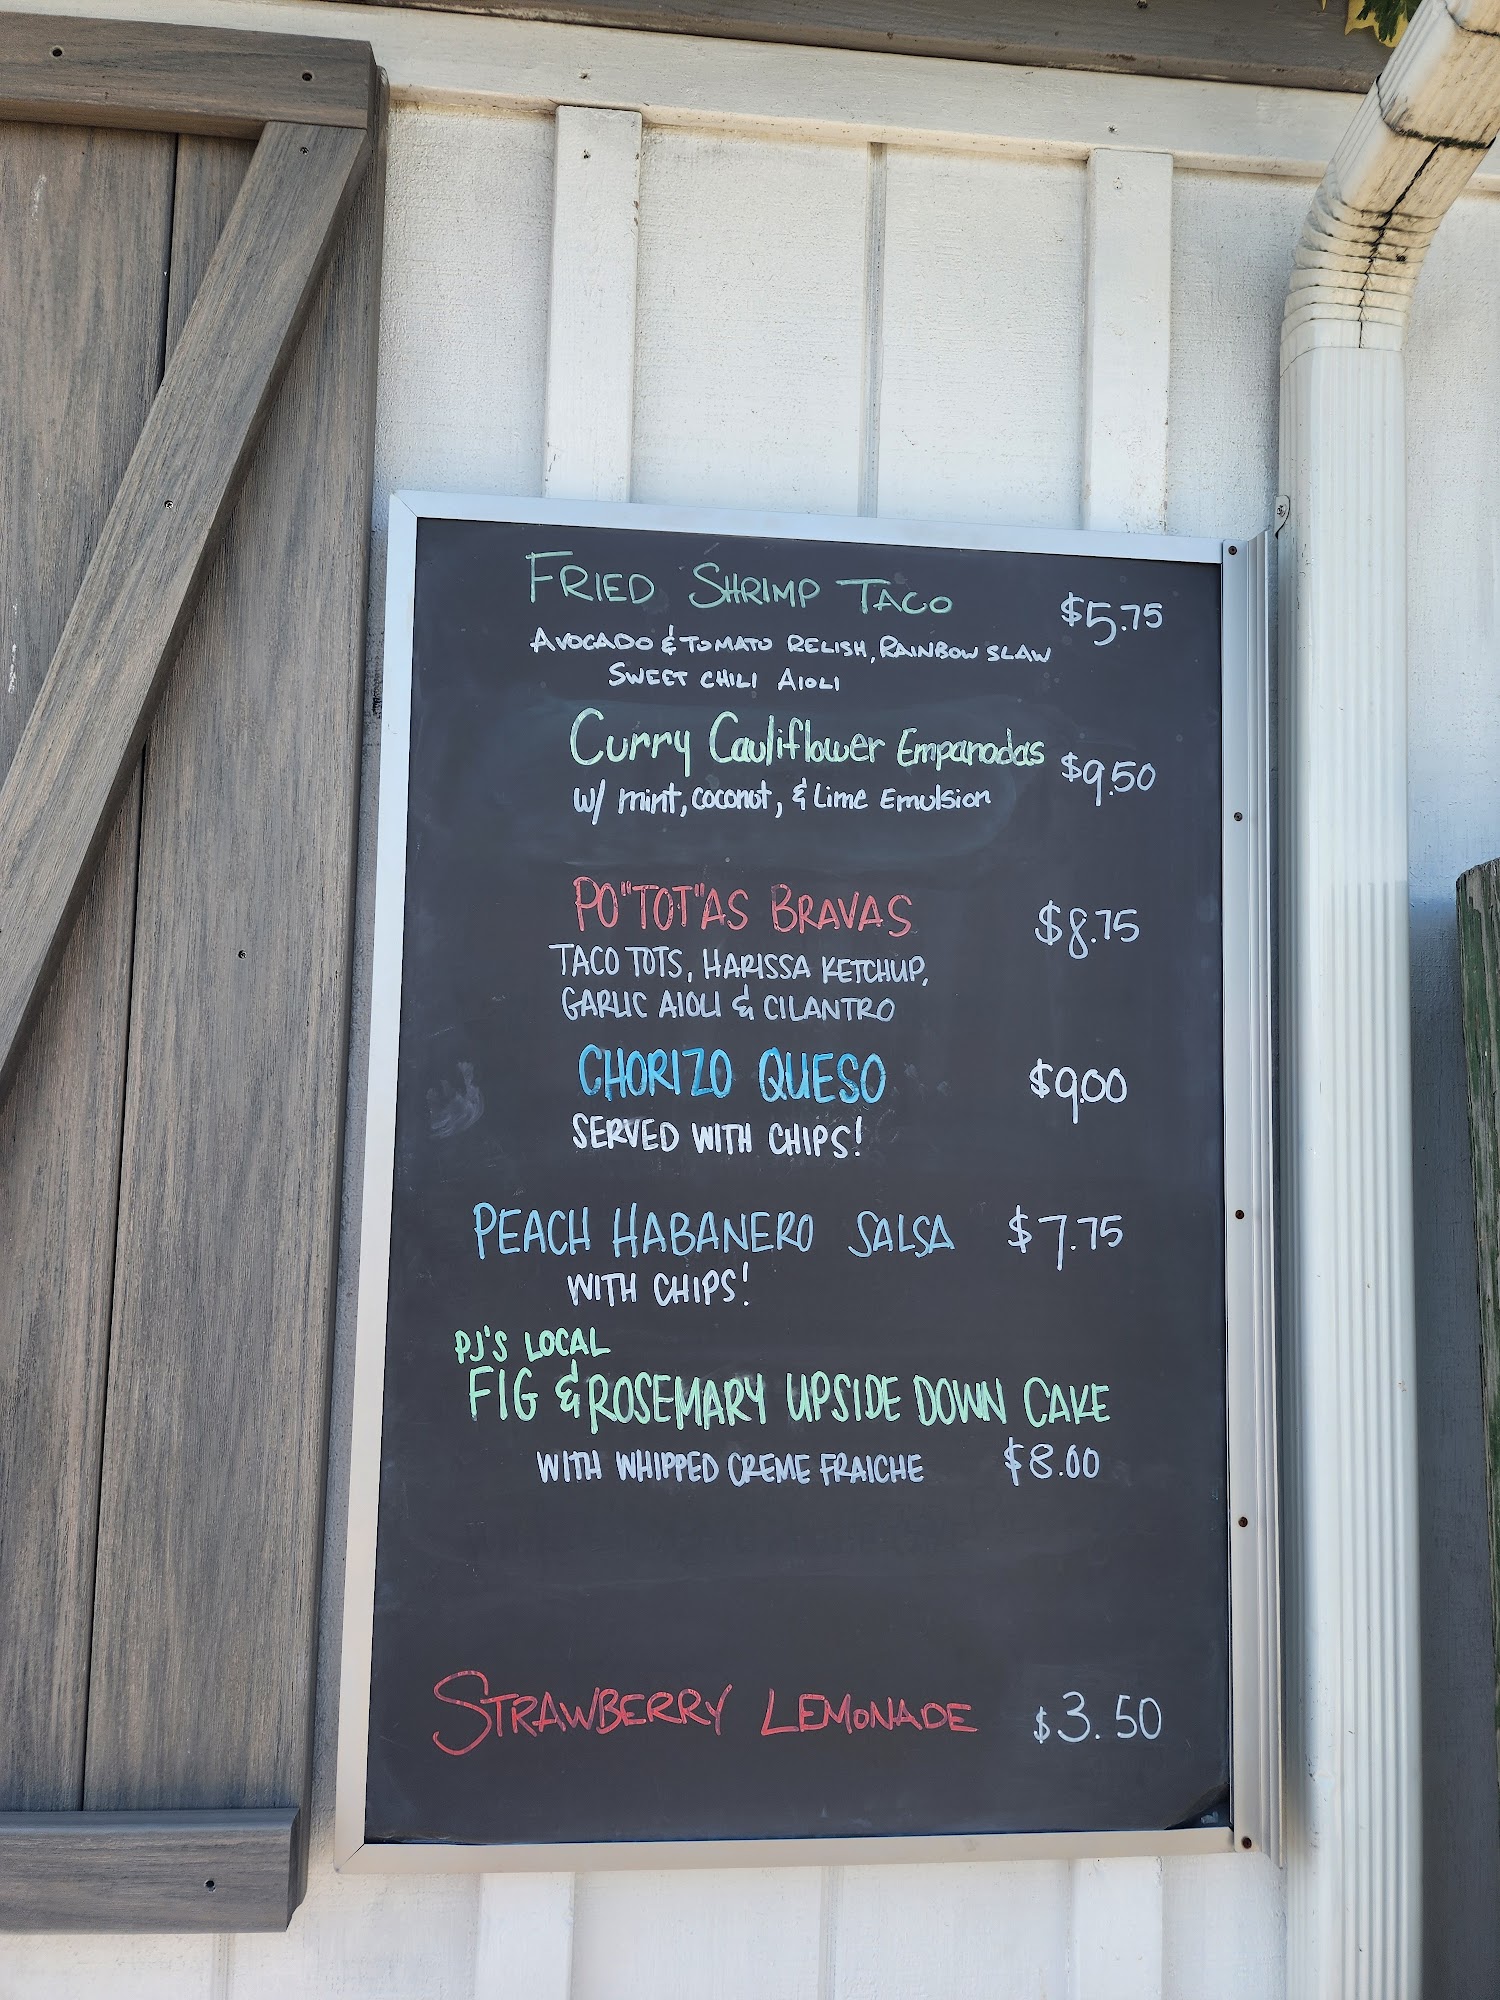 FRIED SHRIMP TACO $5.75
AVOCADO & TOMATO RELISH, RAINBOW SLAW
SWEET CHILI AIOLI
Curry Cauliflower Empanadas $9.50
w/ mint, coconut, & Lime Emulsion
PO"TOT"AS BRAVAS $8.75
TACO TOTS, HARISSA KETCHUP,
GARLIC AIOLI & CILANTRO
CHORIZO QUESO $9.00
SERVED WITH CHIPS!
PEACH HABANERO SALSA $7.75
WITH CHIPS!
PJ'S LOCAL
FIG & ROSEMARY UPSIDE DOWN CAKE
WITH WHIPPED CREME FRAICHE $8.00
STRAWBERRY LEMONADE $3.50